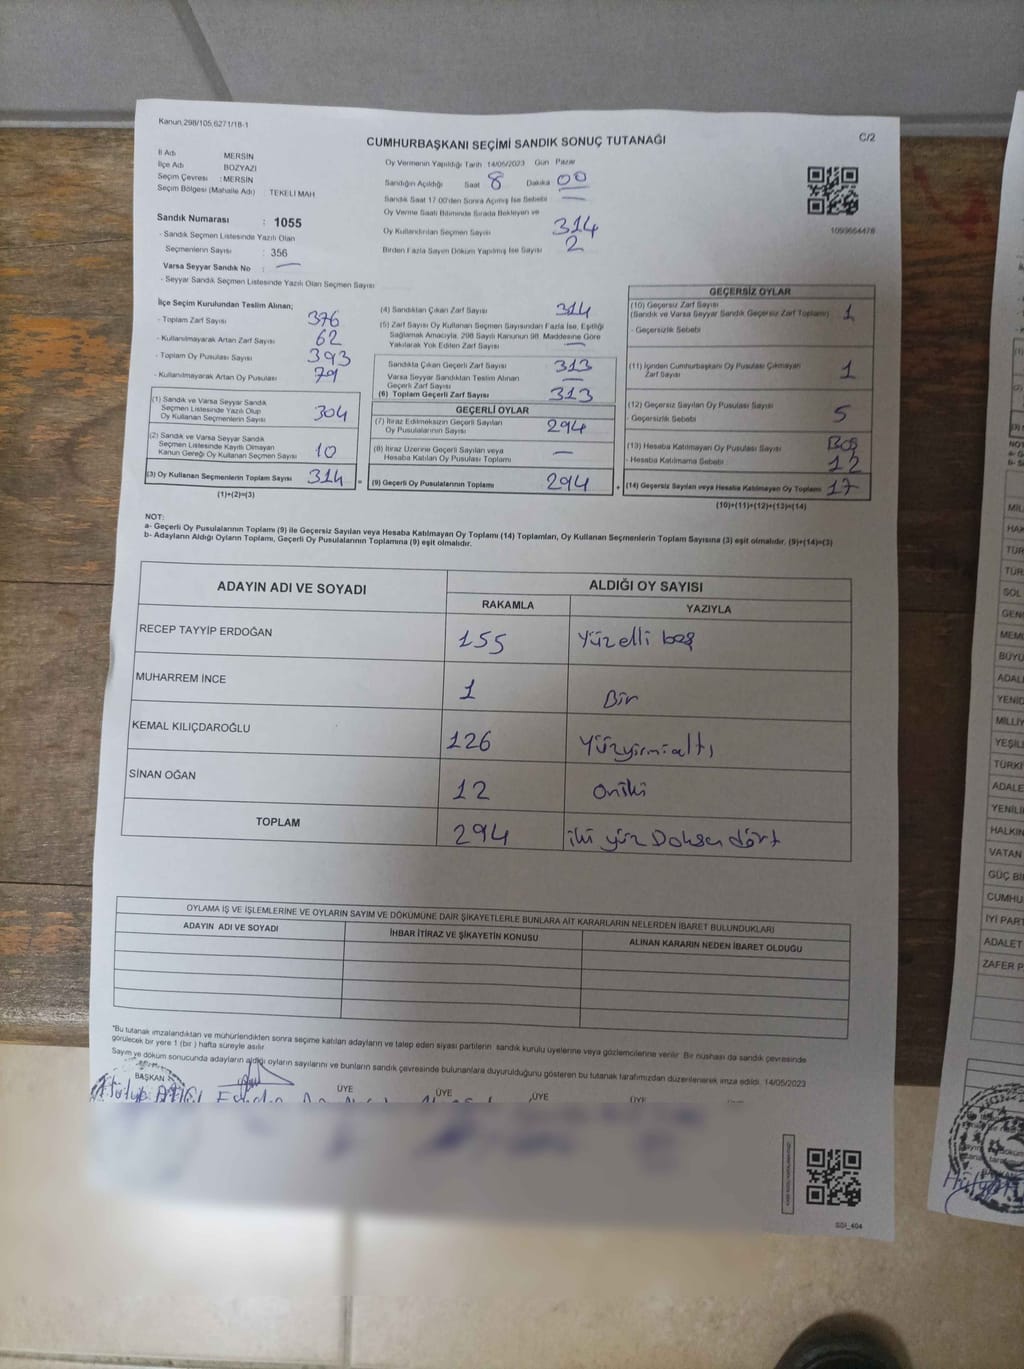 Kanun,298/105,6271/18-1
CUMHURBAŞKANI SEÇİMİ SANDIK SONUÇ TUTANAĞI
C/2
İl Adı MERSİN
İlçe Adı BOZYAZI
Seçim Çevresi : MERSİN
Seçim Bölgesi (Mahalle Adı) : TEKELİ MAH
Sandık Numarası : 1055
- Sandık Seçmen Listesinde Yazılı Olan
Seçmenlerin Sayısı : 356
Varsa Seyyar Sandık No : —
- Seyyar Sandık Seçmen Listesinde Yazılı Olan Seçmen Sayısı
Oy Vermenin Yapıldığı Tarih :14/05/2023 Gün Pazar
Sandığın Açıldığı Saat 8 Dakika 00
Sandık Saat 17.00'den Sonra Açılmış İse Sebebi —
Oy Verme Saati Bitiminde Sırada Bekleyen ve
Oy Kullandırılan Seçmen Sayısı 314
Birden Fazla Sayım Döküm Yapılmış İse Sayısı 2
1093664476
İlçe Seçim Kurulundan Teslim Alınan;
- Toplam Zarf Sayısı 376
- Kullanılmayarak Artan Zarf Sayısı 62
- Toplam Oy Pusulası Sayısı 393
- Kullanılmayarak Artan Oy Pusulası 79
(1) Sandık ve Varsa Seyyar Sandık
Seçmen Listesinde Yazılı Olup
Oy Kullanan Seçmenlerin Sayısı 304
(2) Sandık ve Varsa Seyyar Sandık
Seçmen Listesinde Kayıtlı Olmayan
Kanun Gereği Oy Kullanan Seçmen Sayısı 10
(3) Oy Kullanan Seçmenlerin Toplam Sayısı 314
(1)+(2)=(3)
(4) Sandıktan Çıkan Zarf Sayısı 314
(5) Zarf Sayısı Oy Kullanan Seçmen Sayısından Fazla İse, Eşitliği
Sağlamak Amacıyla, 298 Sayılı Kanunun 98. Maddesine Göre
Yakılarak Yok Edilen Zarf Sayısı —
Sandıkta Çıkan Geçerli Zarf Sayısı 313
Varsa Seyyar Sandıktan Teslim Alınan
Geçerli Zarf Sayısı —
(6) Toplam Geçerli Zarf Sayısı 313
GEÇERLİ OYLAR
(7) İtiraz Edilmeksizin Geçerli Sayılan
Oy Pusulalarının Sayısı 294
(8) İtiraz Üzerine Geçerli Sayılan veya
Hesaba Katılan Oy Pusulası Toplamı —
(9) Geçerli Oy Pusulalarının Toplamı 294
GEÇERSİZ OYLAR
(10) Geçersiz Zarf Sayısı
(Sandık ve Varsa Seyyar Sandık Geçersiz Zarf Toplamı) 1
- Geçersizlik Sebebi
(11) İçinden Cumhurbaşkanı Oy Pusulası Çıkmayan
Zarf Sayısı 1
(12) Geçersiz Sayılan Oy Pusulası Sayısı 5
- Geçersizlik Sebebi
(13) Hesaba Katılmayan Oy Pusulası Sayısı Boş
- Hesaba Katılmama Sebebi 12
(14) Geçersiz Sayılan veya Hesaba Katılmayan Oy Toplamı 17
(10)+(11)+(12)+(13)=(14)
NOT:
a- Geçerli Oy Pusulalarının Toplamı (9) ile Geçersiz Sayılan veya Hesaba Katılmayan Oy Toplamı (14) Toplamları, Oy Kullanan Seçmenlerin Toplam Sayısına (3) eşit olmalıdır. (9)+(14)=(3)
b- Adayların Aldığı Oyların Toplamı, Geçerli Oy Pusulalarının Toplamına (9) eşit olmalıdır.
ADAYIN ADI VE SOYADI
ALDIĞI OY SAYISI
RAKAMLA YAZIYLA
RECEP TAYYİP ERDOĞAN 155 Yüzelli beş
MUHARREM İNCE 1 Bir
KEMAL KILIÇDAROĞLU 126 Yüzyirmialtı
SİNAN OĞAN 12 Oniki
TOPLAM 294 iki yüz Doksan dört
OYLAMA İŞ VE İŞLEMLERİNE VE OYLARIN SAYIM VE DÖKÜMÜNE DAİR ŞİKAYETLERLE BUNLARA AİT KARARLARIN NELERDEN İBARET BULUNDUKLARI
ADAYIN ADI VE SOYADI İHBAR İTİRAZ VE ŞİKAYETİN KONUSU ALINAN KARARIN NEDEN İBARET OLDUĞU
"Bu tutanak imzalandıktan ve mühürlendikten sonra seçime katılan adayların ve talep eden siyasi partilerin sandık kurulu üyelerine veya gözlemcilerine verilir. Bir nüshası da sandık çevresinde
görülecek bir yere 1 (bir ) hafta süreyle asılır.
Sayım ve döküm sonucunda adayların aldığı oyların sayılarını ve bunların sandık çevresinde bulunanlara duyurulduğunu gösteren bu tutanak tarafımızdan düzenlenerek imza edildi. 14/05/2023
BAŞKAN ÜYE ÜYE ÜYE ÜYE
SGI_404
MİL
HAK
TÜR
TÜR
SOL
GEN
MEM
BÜYÜ
ADAL
YENİD
MİLLİY
YEŞİL
TÜRKİ
ADALE
YENİLİ
HALKIN
VATAN
GÜÇ Bİ
CUMHU
İYİ PART
ADALET
ZAFER P